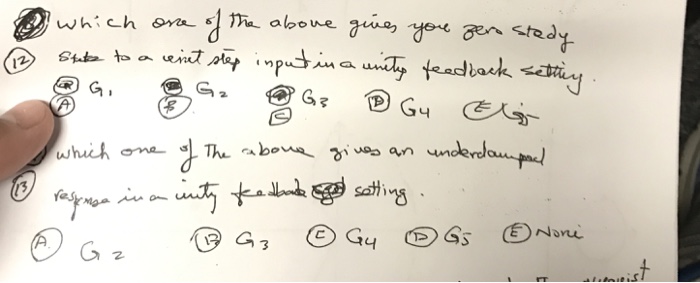 which one of the above gives you zero stedy
(12) State to a unit step input in a unity feedback setting.
(A) G1 (B) G2 (C) G3 (D) G4 (E) G5
which one of The above gives an underdamped
(13) response in a unity feedback setting.
(A) G2 (B) G3 (C) G4 (D) G5 (E) None